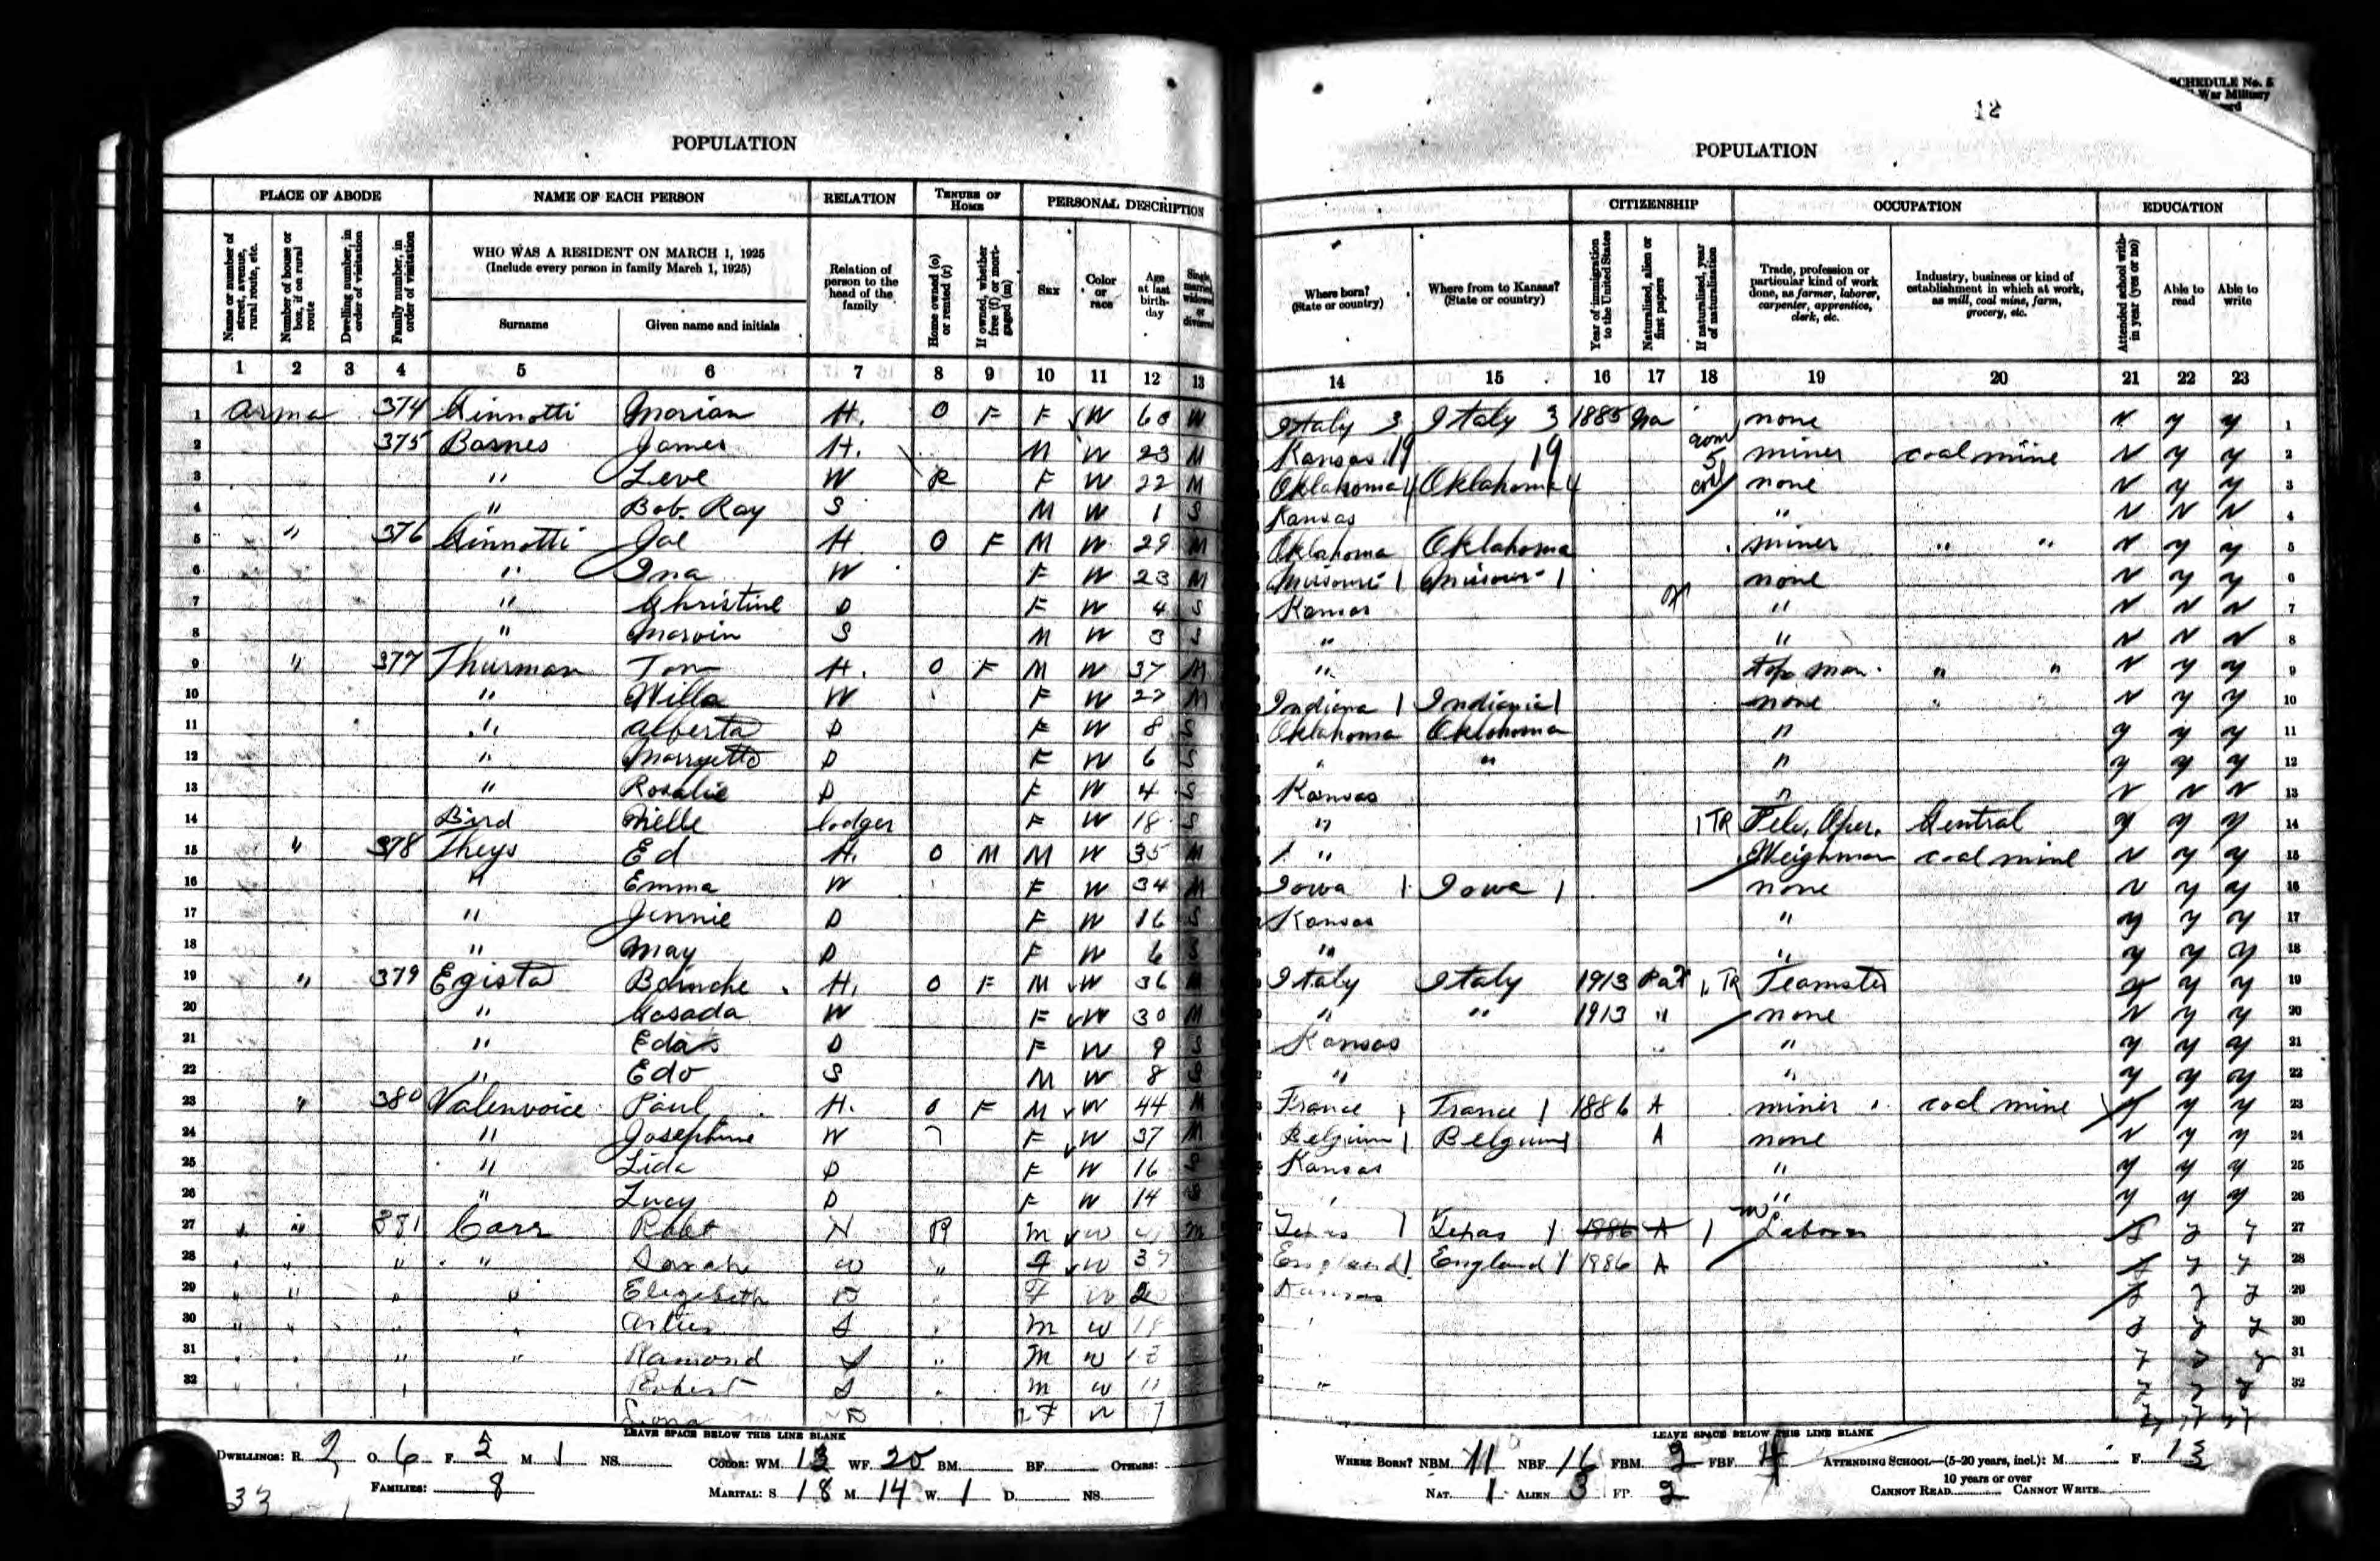 SCHEDULE No. 5
War Military
12
POPULATION
POPULATION
PLACE OF ABODE NAME OF EACH PERSON RELATION TENURE OF HOME PERSONAL DESCRIPTION CITIZENSHIP OCCUPATION EDUCATION
Name or number of street, avenue, rural route, etc. Number of house or box, if on rural route Dwelling number, in order of visitation Family number, in order of visitation WHO WAS A RESIDENT ON MARCH 1, 1925 (Include every person in family March 1, 1925) Surname Given name and initials Relation of person to the head of the family Home owned (o) or rented (r) If owned, whether free (f) or mortgaged (m) SEX Color or race Age at last birthday Single, married, widowed or divorced Where born? (State or country) Where from to Kansas? (State or country) Year of immigration to the United States Naturalized, alien or first papers If naturalized, year of naturalization Trade, profession or particular kind of work done, as farmer, laborer, carpenter, apprentice, clerk, etc. Industry, business or kind of establishment in which at work, as mill, coal mine, farm, grocery, etc. Attended school within year (yes or no) Able to read Able to write
1 2 3 4 5 6 7 8 9 10 11 12 13 14 15 16 17 18 19 20 21 22 23
1 Arma 374 Ginnotti Marian H. O F F W 60 W Italy 3 Italy 3 1885 Na none N y y 1
2 375 Barnes James H. M W 23 M Kansas 19 19 miner coal mine N y y 2
3 " Leve W R F W 22 M Oklahoma 4 Oklahoma 4 none N y y 3
4 " Bob. Ray S M W 1 S Kansas " N N N 4
5 " 376 Ginnotti Joe H O F M W 29 M Oklahoma Oklahoma miner " " N y y 5
6 " Ina W F W 23 M Missouri 1 Missouri 1 none N y y 6
7 " Christine D F W 4 S Kansas " N N N 7
8 " Marvin S M W 3 S " " N N N 8
9 " 377 Thurman Tom H. O F M W 37 M " Top man " " N y y 9
10 " Willa W F W 27 M Indiana 1 Indiania 1 none " N y y 10
11 " Alberta D F W 8 S Oklahoma Oklahoma " y y y 11
12 " Marryetta D F W 6 S " " " y y y 12
13 " Rosalie D F W 4 S Kansas " N N N 13
14 Bird Nelle lodger F W 18 S " 1 TR Tele. Oper. Central y y y 14
15 " 378 Theys Ed H. O M M W 35 M " Weighman coal mine N y y 15
16 " Emma W F W 34 M Iowa 1 Iowa 1 none N y y 16
17 " Jennie D F W 16 S Kansas " y y y 17
18 " May D F W 6 S " " y y y 18
19 " 379 Egista H. O F M W 36 M Italy Italy 1913 Pa 1 TR Teamster y y y 19
20 " Casada W F W 30 M " " 1913 " none N y y 20
21 " Eda D F W 9 S Kansas " y y y 21
22 " Edo S M W 8 S " " y y y 22
23 " 380 Valenvoice Paul H. O F M W 44 M France 1 France 1 1886 A miner coal mine y y y 23
24 " Josephine W F W 37 M Belgium 1 Belgium 1 A none N y y 24
25 " Lida D F W 16 S Kansas " y y y 25
26 " Lucy D F W 14 S " " y y y 26
27 " " 381 Carr Robt H R M W 41 M Texas 1 Texas 1 1986 A 1 Labor y y y 27
28 " " " " Sarah W " F W 37 England 1 England 1 1986 A y y y 28
29 " " " " Elizabeth D " F W Kansas y y y 29
30 " " " " S " M W 18 " y y y 30
31 " " " " Ramond S " M W y y y 31
32 " " " Robert S " M W 11 " y y y 32
D F W 7 y y y
LEAVE SPACE BELOW THIS LINE BLANK
LEAVE SPACE BELOW THIS LINE BLANK
DWELLINGS: R. 2 O. 6 F. 5 M. 1 NS. COLOR: WM. 13 WF. 20 BM. BF. OTHERS:
FAMILIES: 8 MARITAL: S. 18 M. 14 W. 1 D. NS.
33
WHERE BORN? NBM. 11 NBF. 16 FBM. 2 FBF. 4 ATTENDING SCHOOL—(5-20 years, incl.): M. F. 13
NAT. 1 ALIEN 3 FP. 2 10 years or over CANNOT READ CANNOT WRITE